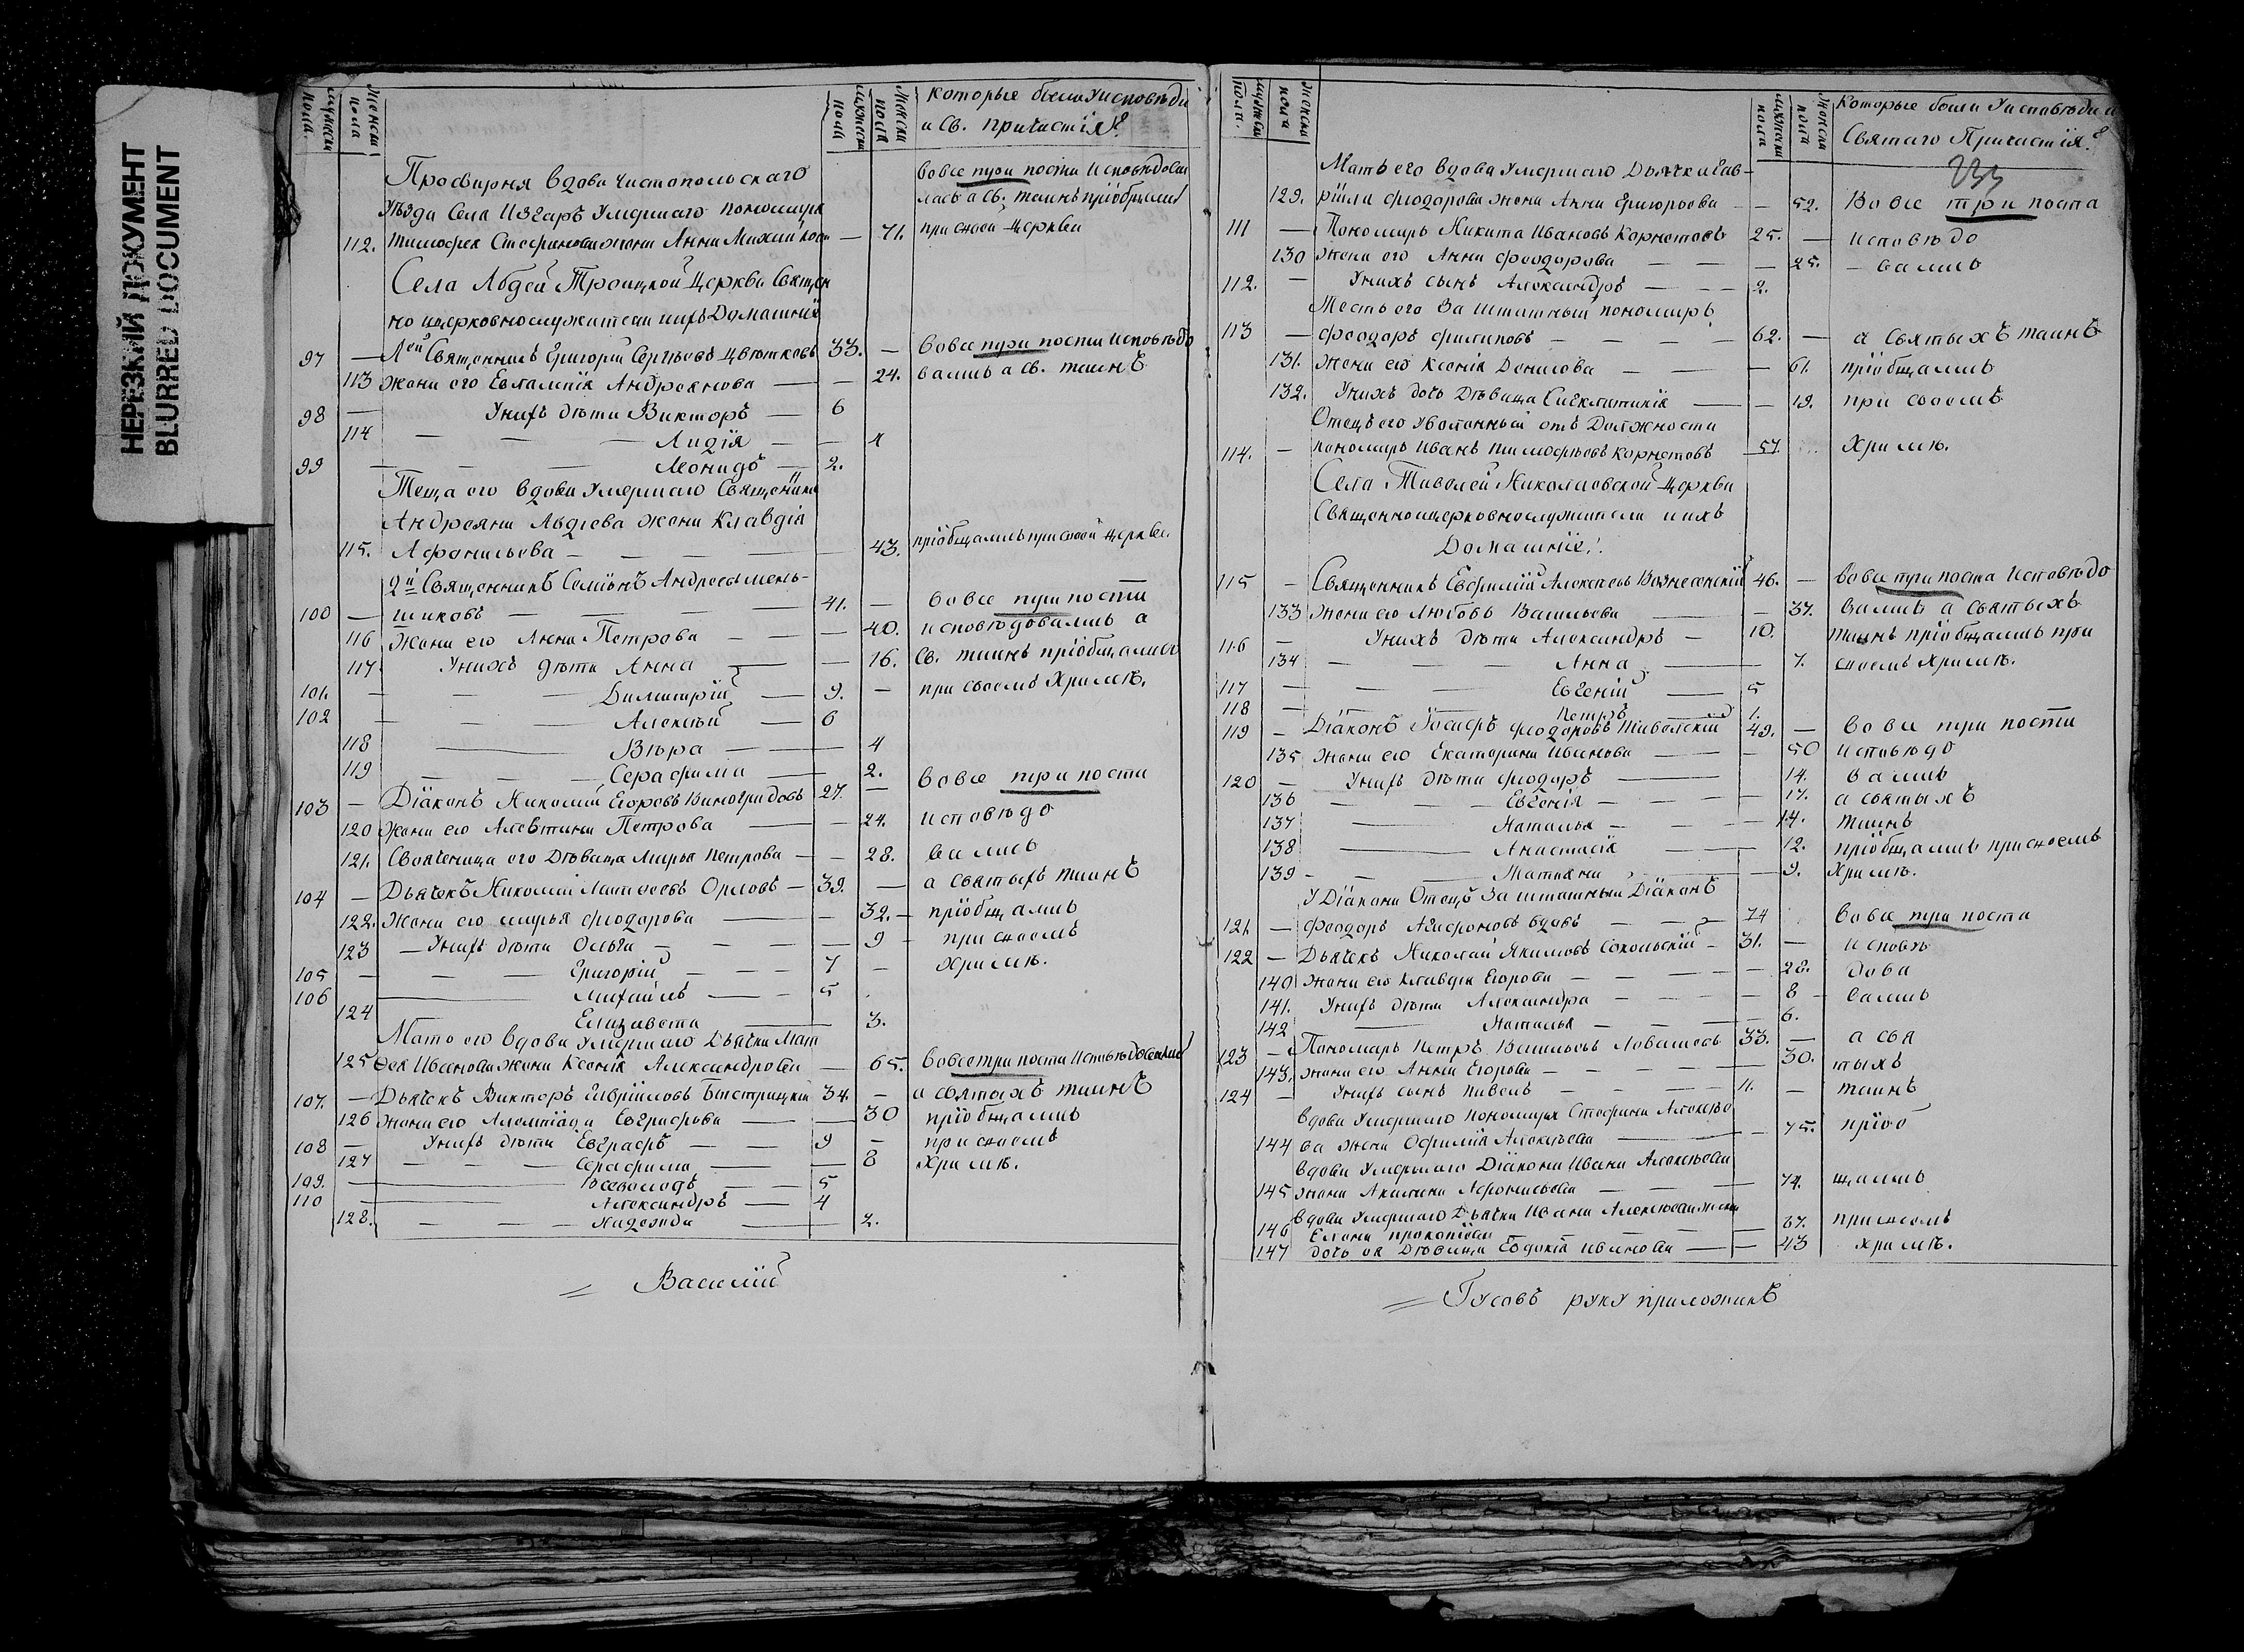 НЕРЕЗКИЙ ДОКУМЕНТ
BLURRED DOCUMENT
мужеска пола.
женска пола
мужеска пола
женска пола
которые были у исповѣди
и Св. Причастія?
Просвирня вдова Чистопольскаго
уѣзда Села Изгаръ умершаго пономаря
112. Тимофея Стефанова жена Анна Михайлова — 71.
во все три поста исповѣдова
лась а Св. таинъ пріобщилась
при своей Церкви
Села Абдей Троицкой Церкви Священ
но церковнослужители и ихъ Домашніи
97 — 1ей Священникъ Григорій Сергѣевъ Цвѣтковъ 33. — во все три поста исповѣдо
113 жена его Евлампія Андреянова — — 24. вались а св. таинъ
98 — У нихъ дѣти Викторъ — 6
114 — — — Лидія — — 4
99 — — — Леонидъ — 2.
Теща его вдова умершаго Священника
Андреяна Авдіева жена Клавдія
115. Афонасьева — — — — 43. пріобщалась при своей церкви.
2й Священникъ Семіонъ Андреевъ Мень-
100 — шиковъ — — — 41. — во все три поста
116 Жена его Анна Петрова — — — 40. исповѣдовались а
117 У нихъ дѣти Анна — — 16. Св. таинъ пріобщались
101. — — — Димитрій — 9. — при своемъ Храмѣ.
102 — — — Алексѣй — 6
118 — Вѣра — — — 4
119 — — — Серафима — 2.
103 — Діаконъ Николай Егоровъ Виноградовъ 27. — во все три поста
120 Жена его Алевтина Петрова — — 24. исповѣдо
121. Свояченица его Дѣвица Марья Петрова — — 28. вались
104 — Дьячекъ Николай Матвеевъ Орловъ — 39. — а Святыхъ таинъ
122. Жена его Марья Феодорова — — 32. — пріобщались
123 — У нихъ дѣти Ольга — — — — 9 — при своемъ
105 — — — Григорій — — — 7 — Храмѣ.
106 — Михаилъ — — 5
124 — Елизавета — 3.
Мать его вдова умершаго Дьячка Мат
125 фея Иванова жена Ксенія Александрова — — 65. во все три поста исповѣдовались
107. — Дьячекъ Викторъ Гавріиловъ Быстрицкій 34. — а святыхъ таинъ
126 жена его Алимпіада Евграфова — — 30 пріобщались
108 — У нихъ дѣти Евграфъ — — 9 — при своемъ
127 — — — Серафима — — 8 Храмѣ.
109. — — Всеволодъ — — 5
110 — — Александръ — 4
128. — — — Надежда — — 2.
= Василій
мужеска пола.
женска пола
мужеска пола
женска пола
Которые были у исповѣди и
Святаго Причастія?
Мать его вдова умершаго Дьячка Гав-
129. ріила Феодорова жена Анна Григорьева — — 52. Во все три поста
111 — Пономарь Никита Ивановъ Корнетовъ 25. — исповѣдо
130 жена его Анна Феодорова — — — 25. — вались
112. — У нихъ сынъ Александръ — — — 2.
Тесть его Заштатный пономарь
113 — Феодоръ Филиповъ — — — — 62. — а Святыхъ таинъ
131. жена его Ксенія Денисова — — — 61. пріобщались
132. У нихъ дочь Дѣвица Сигклитикія — — 19. при своемъ
Отецъ его уволенный отъ Должности
114. — пономарь Иванъ Тимофѣевъ Корнетовъ 57. Храмѣ.
Села Тиволей Николаевской Церкви
Священноцерковнослужители и ихъ
Домашніе:
115 — Священникъ Евфимій Алексеевъ Вознесенскій 46. — во все три поста Исповѣдо
133 жена его Любовь Васильева — — 37. вались а Святыхъ
116 — У нихъ дѣти Александръ — 10. таинъ пріобщались при
134 — — — Анна — 7. своемъ Храмѣ.
117 — — — Евгеній — 5
118 — — — Петръ — 1.
119 — Діаконъ Іосифъ Феодоровъ Тивельскій 49. — во все три поста
135 жена его Екатерина Иванова — — 50 исповѣдо
120 — У нихъ дѣти Феодоръ — 14. вались
136 — — — Евгенія — — — — 17. а святыхъ
137 — Наталья — — — 14. таинъ
138 — Анастасія — — 12. пріобщались при своемъ
139 — — — Матрена — 9. Храмѣ.
У Діакона Отецъ Заштатный Діаконъ
121. — Феодоръ Агафоновъ вдовъ — — — 74 во все три поста
122 — Дьячекъ Николай Якимовъ Сокольскій — 31. — исповѣ
140 жена его Клавдія Егорова — — — — 28. дова
141. У нихъ дѣти Александра — — — — 8 — вались
142 — Наталья — — — — 6.
123 — Пономарь Петръ Васильевъ Ловашевъ 33. — а свя
143. жена его Анна Егорова — — — — 30. тыхъ
124 — У нихъ сынъ Павелъ — — — 11. — таинъ
вдова умершаго пономаря Стефана Алексѣе
144 ва жена Офимія Алексѣева — — 75. пріоб
вдова умершаго Діакона Ивана Алексѣева
145 жена Акилина Афонасьева — — — 74. щались
вдова умершаго Дьячка Ивана Алексѣева жена
146 Елена Прокопіева — — — 67. при своемъ
147 дочь ея Дѣвица Евдокія Иванова — — 43 храмѣ.
= Гусевъ руку приложилъ